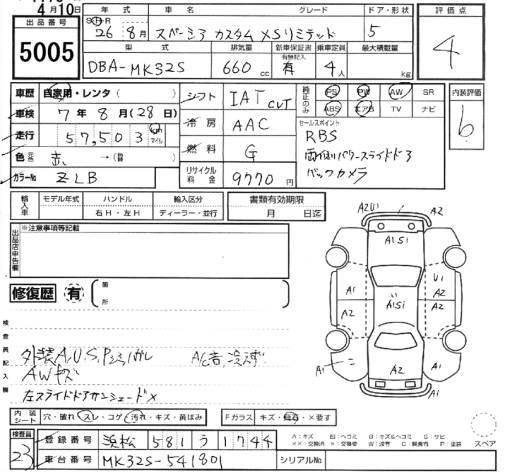 4月10日
出品番号
5005
年式 車名 グレード ドア・形状
26年 8月 スペーシア カスタム XSリミテッド 5
型式 排気量 新車保証書 乗車定員 最大積載量
DBA-MK32S 660cc 有 4人 kg
評価点
4
車歴 自家用・レンタ( )
車検 7年 8月(28日)
走行 57,503 km マイル
色 赤 →(替 )
カラーNo ZLB
シフト IAT CVT
冷房 AAC
燃料 G
リサイクル料金 9770円
純正のみ PS PW AW SR
ABS エアB TV ナビ
セールスポイント
RBS
両側パワースライドドア
バックカメラ
内装評価
b
輸入車 モデル年式 ハンドル 輸入区分
右H・左H ディーラー・並行
書類有効期限
月 日迄
出品店申告欄
※注意事項等記載
修復歴 有 箇所
検査員記入欄
AWキズ
左スライドドアサンシェード×
内装シート 穴・破れ スレ・コゲ 汚れ・キズ・黄ばみ
Fガラス キズ・飛石・×要す
検査員 23
登録番号 浜松 581 う 1744
車台番号 MK32S-541801
シリアルNo
A2U1 A2
A1S1
A1 U1
A1S1
A2 A2
A1 A2
A2
A2 A2
スペア